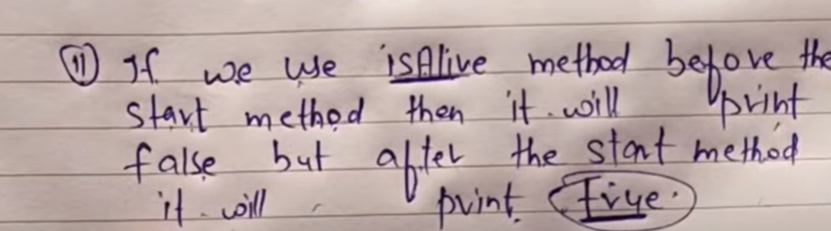 (11) If we use isAlive method before the
start method then it will print
false but after the start method
it will print true.